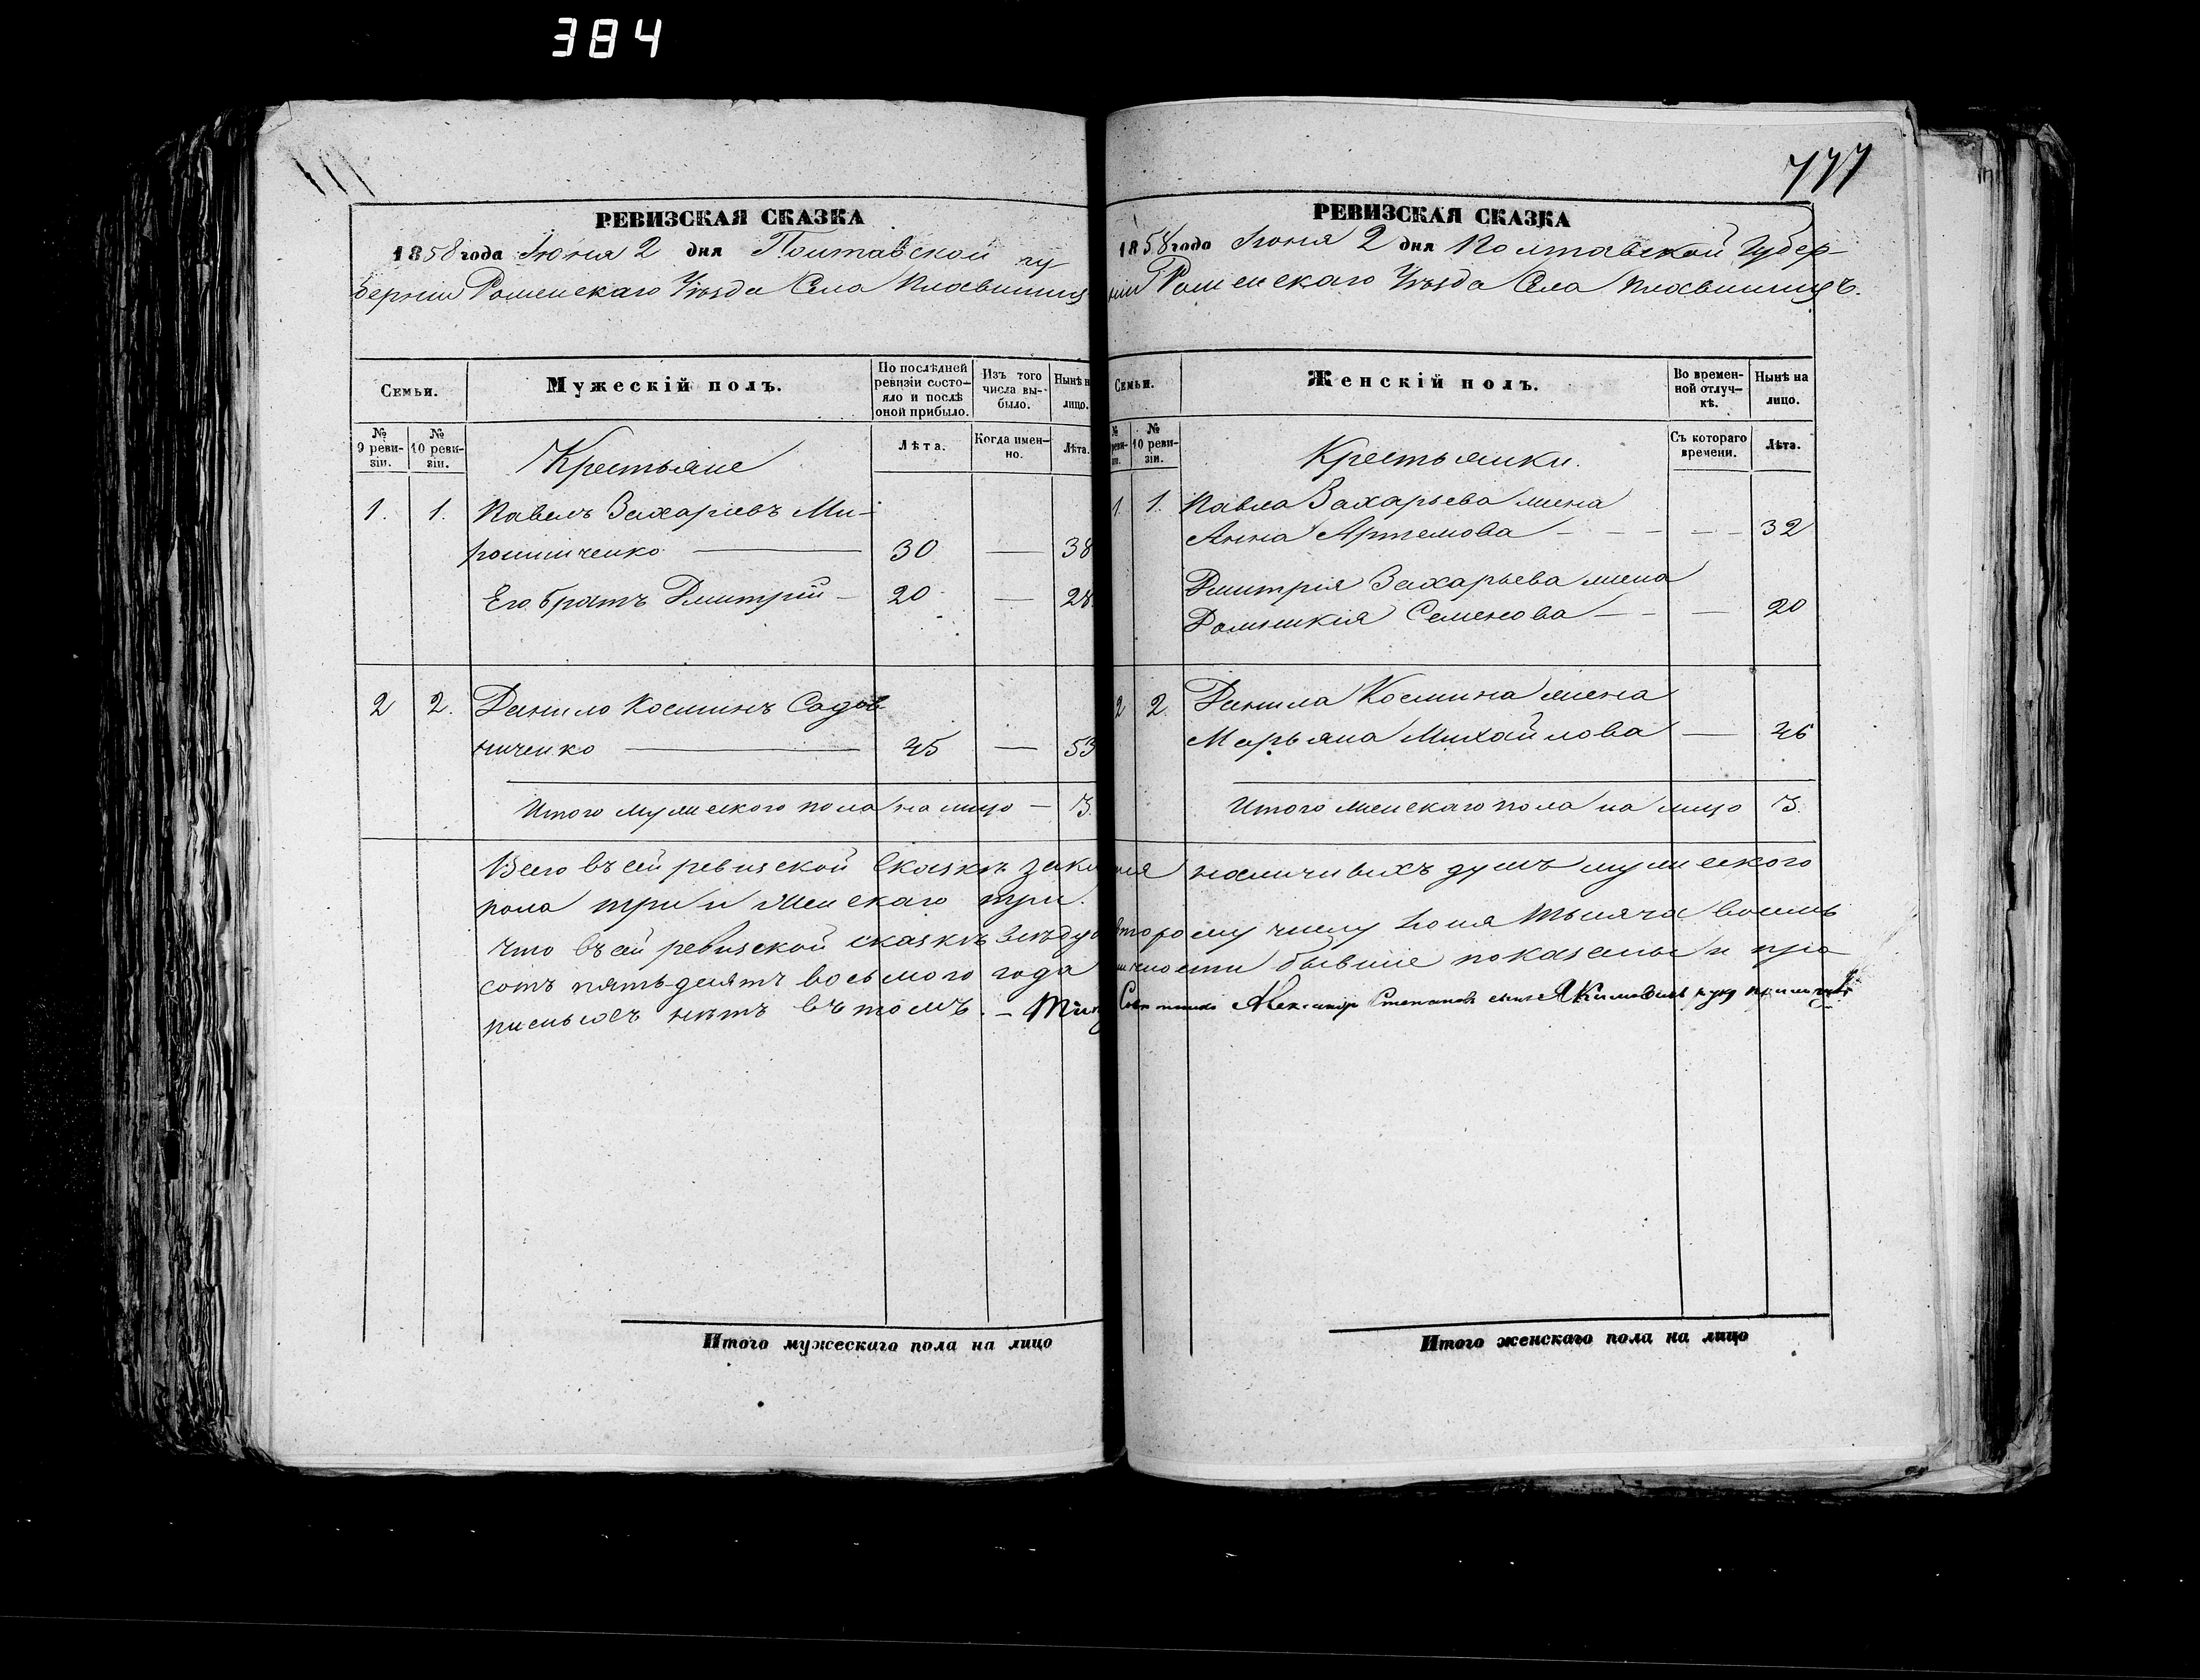 384
777
РЕВИЗСКАЯ СКАЗКА
1858 года Іюня 2 дня Полтавской гу
берніи Роменскаго Уѣзда Села Плавинищ
Семьи.
Мужескій полъ.
По послѣдней ревизіи состо-
яло и послѣ
оной прибыло.
Изъ того
числа вы-
было.
Нынѣ н
лицо.
№ 9 реви-
зіи.
№ 10 реви-
зіи.
Крестьяне
Лѣта.
Когда имен-
но.
Лѣта.
1. 1. Павелъ Захаріевъ Ми-
рошниченко 30 — 38
Его братъ Дмитрій – 20 — 28
2 2. Данило Косминъ Садов
ниченко 45 — 53
Итого мужескаго пола на лицо — 3.
РЕВИЗСКАЯ СКАЗКА
1858 года Іюня 2 дня Полтавской Губер-
ніи Роменскаго Уѣзда Села Плавинищъ.
Семьи.
Женскій полъ.
Во времен-
ной отлуч-
кѣ.
Нынѣ на
лицо.
№ реви-
зіи.
№ 10 реви-
зіи.
Крестьянки.
Съ котораго
времени.
Лѣта.
1. 1. Павла Захарьева жена
Анна Артемова – – – – – 32
Дмитрія Захарьева жена
Домникія Семенова – – — 20
2 2. Данила Космина жена
Марьяна Михайлова — 46
Итого женскаго пола на лицо 3.
Всего въ сей ревизской сказкѣ наличныхъ душъ мужескаго
пола три и женскаго три.
Что въ сей ревизской сказкѣ второму числу Іюня тысяча восемь
сотъ пять-десятъ восьмого года бывшіе показаны и про
писныхъ нѣтъ въ томъ. – Александр Степанов сынъ Якимович руку приложилъ
Итого мужескаго пола на лицо
Итого женскаго пола на лицо